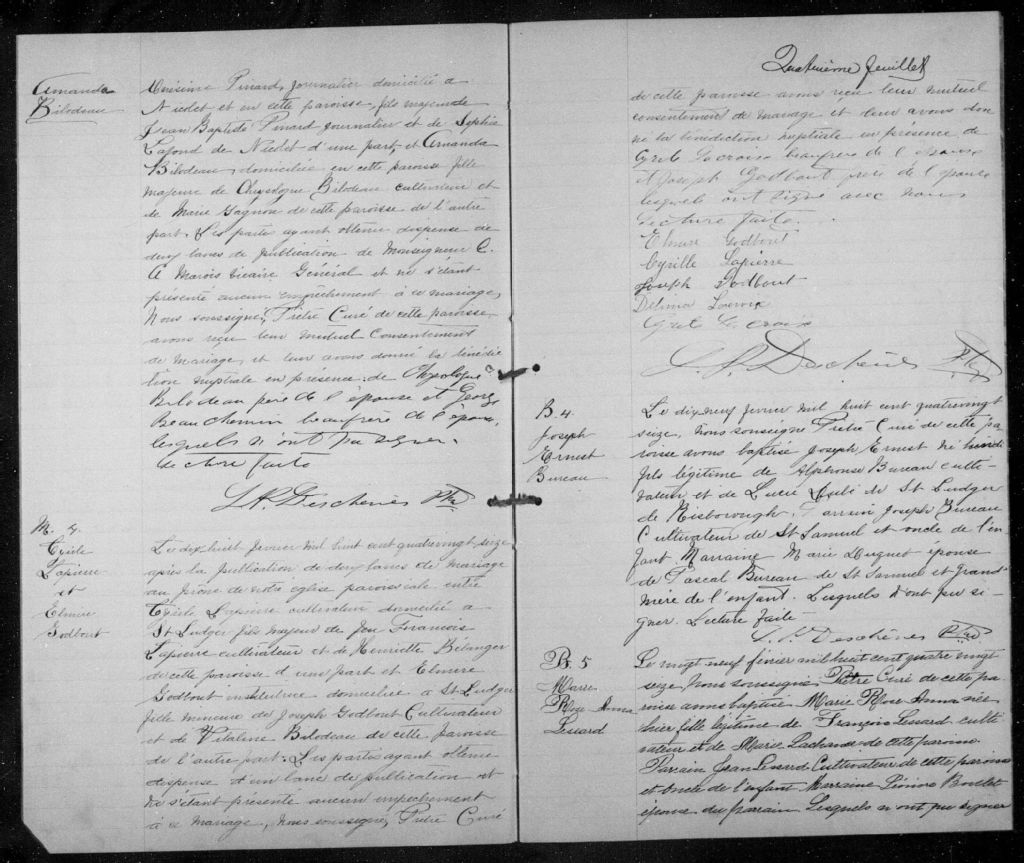 Amanda
Bilodeau
Onésime Pinard, journalier domicilié a
Nicolet et en cette paroisse, fils majeur de
Jean Baptiste Pinard journalier et de Sophie
Lafond de Nicolet d'une part, et Amanda
Bilodeau, domiciliée en cette paroisse fille
majeure de Chrysologue Bilodeau cultivateur et
de Marie Gagnon de cette paroisse de l'autre
part. Les parties ayant obtenu dispense de
deux bans de publication de Monseigneur C.
A Marois Vicaire Général et ne s'étant
présenté aucun empêchement à ce mariage,
Nous soussigné, Prêtre Curé de cette paroisse,
avons reçu leur mutuel Consentement
de Mariage, et leur avons donné la bénédic
tion nuptiale en présence de
Bilodeau père de l'épouse et
Beauchemin beaufrère de l'époux,
lesquels n'ont pu signer.
Lecture faite
Deschênes Ptre
M. 4.
Cyrille
Lapierre
et
Elmire
Godbout
Le dix huit février mil huit cent quatrevingt seize
après la publication de deux bans de mariage
au prône de notre église paroissiale entre
Lapierre cultivateur domicilié à
St Ludger fils majeur de Jean François
Lapierre cultivateur et de Henriette Bélanger
de cette paroisse d'une part et Elmire
Godbout institutrice domiciliée à St Ludger
fille mineure de Joseph Godbout Cultivateur
et de Vitaline Bilodeau de cette paroisse
de l'autre part. Les parties ayant obtenu
dispense d'un banc de publication et
ne s'étant présenté aucun empechement
à ce mariage, Nous soussigné, Prêtre Curé
Quatrième feuillet
de cette paroisse avons reçu leur mutuel
consentement de mariage et leur avons don
né la bénédiction nuptiale en présence de
Lacroix beaufrère de l'époux
et Joseph Godbout père de l'épouse
lesquels ont signé avec nous
Lecture faite.
Elmire Godbout
Cyrille Lapierre
Joseph Godbout
Delima Lacroix
Lacroix
Deschênes Ptre
B. 4
Joseph
Ernest
Bureau
Le dix neuf février mil huit cent quatrevingt
seize, Nous soussigné Prêtre Curé de cette pa
roisse avons baptisé Joseph Ernest né
fils légitime de Alphonse Bureau culti-
vateur et de de St Ludger
de Risborough. Parrain Joseph Bureau
Cultivateur de St Samuel et oncle de l'en
fant Marraine Marie Duguet épouse
de Pascal Bureau de St Samuel et Grand'
mère de l'enfant. Lesquels n'ont pu si-
gner. Lecture faite
Deschênes Ptre
B. 5
Marie
Rose Anna
Lessard
Le vingt neuf février mil huit cent quatre vingt
seize, Nous soussigné, Prêtre Curé de cette pa
roisse avons baptisé Marie Rose Anna née
hier fille légitime de François Lessard culti
vateur et de Marie Lachance de cette paroisse.
Parrain Jean Lessard Cultivateur de cette paroisse
et Oncle de l'enfant Marraine Boulet
épouse du parrain Lesquels n'ont pu signer